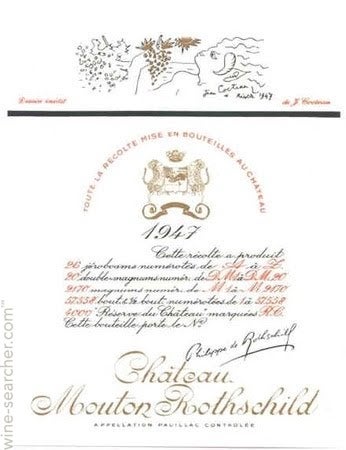 Jean Cocteau
1947
Dessin inédit
de J. Cocteau
TOUTE LA RÉCOLTE MISE EN BOUTEILLES AU CHÂTEAU
1947
Cette récolte a produit
26 jéroboams numérotés de A à Z
20 double-magnums numér. de D.M.1 à D.M.20
9170 magnums numér. de M 1 à M 9170
57558 bout. & ½ bout. numérotées de 1 à 57558
4000 "Réserve du Château" marquées R.C.
Cette bouteille porte le Nº
Philippe de Rothschild
Château
Mouton Rothschild
APPELLATION PAUILLAC CONTRÔLÉE
wine-searcher.com